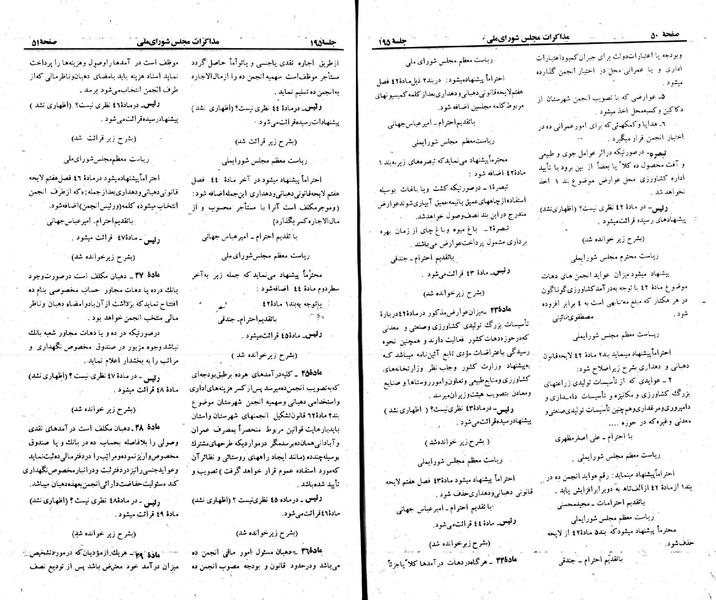 صفحهٔ ۵۰ مذاکرات مجلس شورای ملی جلسهٔ ۱۹۵
وبودجه یا اعتبارات دولت برای جبران کمبود اعتبارات
اداری و یا عمرانی محل در اختیار انجمن گذارده
میشود.
۵ـ عوارضی که با تصویب انجمن شهرستان از
دکاکین و کسبه محل اخذ میشود.
۶ـ هدایا و کمکهائی که برای امور عمرانی ده در
اختیار انجمن قرار میگیرد.
تبصره ـ درصورتیکه در اثر عوامل جوی و طبیعی
و آفت محصول ده کلاً یا بعضاً از بین برود با تأیید
اداره کشاورزی محل عوارض موضوع بند ۱ اخذ
نخواهد شد.
رئیس ـ در مادهٔ ۴۲ نظری نیست؟ (اظهاری نشد)
پیشنهادهای رسیده قرائت میشود.
(بشرح زیر خوانده شد)
ریاست محترم مجلس شورایملی
پیشنهاد میشود میزان عواید انجمن های ده
موضوع مادهٔ ۴۲ با توجه به درآمد کشاورزی گوناگون
در هر هکتار که مبلغ به ۴ برابر افزوده
شود. مصطفوی نائینی
ریاست معظم مجلس شورایملی
احتراماً پیشنهاد مینماید بند ۲ مادهٔ ۴۲ لایحه قانون
دهبانی و دهداری بشرح زیر اصلاح شود:
۲ـ عوایدی که از تأسیسات تولیدی زراعتهای
بزرگ کشاورزی و مکانیزه و تأسیسات دامداری و
دامپروری و مرغداری و همچنین تأسیسات تولیدی صنعتی و
معدنی و غیره که در حوزه ....
با احترام ـ علی اصغر مظهری
ریاست معظم مجلس شورایملی
احتراماً پیشنهاد مینماید: رقم عواید انجمن ده در
بند ۱ از مادهٔ ۴۲ از الف تا هـ به دو برابر افزایش یابد.
با تقدیم احترامات ـ مجید محسنی
ریاست معظم مجلس شورای ملی
محترماً پیشنهاد میشود که بند ۵ مادهٔ ۴۲ از لایحه
حذف شود.
با تقدیم احترام ـ جندقی
ریاست معظم مجلس شورای ملی
احتراماً پیشنهاد میشود: در بند ۲ ذیل مادهٔ ۴۲ فصل
هفتم لایحه قانونی دهبانی و دهداری بعد از کلمه کمیسیونهای
مربوط کلمه مجلسین اضافه شود.
با تقدیم احترام ـ امیرعباس جهانی
ریاست معظم مجلس شورایملی
محترماً پیشنهاد می نماید که تبصره های زیر به بند ۱
مادهٔ ۴۲ اضافه شود:
تبصره ۱ـ درصورتیکه کشت و یا باغات بوسیله
استفاده از چاههای عمیق یا نیمه عمیق آبیاری شوند عوارض
مندرج در این بند نصف وصول خواهد شد.
تبصره ۲ـ باغ میوه و باغ چای از زمان بهره
برداری مشمول پرداخت عوارض می باشند.
با تقدیم احترام ـ جندقی
رئیس ـ مادهٔ ۴۳ قرائت می شود.
(بشرح زیر قرائت شد)
مادهٔ ۴۳ـ میزان عوارض مذکور در مادهٔ ۴۲ دربارهٔ
تأسیسات بزرگ تولیدی کشاورزی وصنعتی و معدنی
که در حوزه دهات کشور فعالیت دارند و همچنین نحوه
رسیدگی باعتراضات مؤدی تابع آئین نامه میباشد که
به پیشنهاد وزارت کشور و جلب نظر وزارتخانه های
کشاورزی و منابع طبیعی و تعاون و امور روستاها و صنایع
و معادن بتصویب هیئت وزیران میرسد.
رئیس ـ در مادهٔ ۴۳ نظری نیست؟ (اظهاری نشد)
پیشنهاد رسیده قرائت میشود.
(بشرح زیر خوانده شد)
ریاست معظم مجلس شورایملی
احتراماً پیشنهاد میشود مادهٔ ۴۳ فصل هفتم لایحه
قانونی دهبانی و دهداری حذف شود.
با تقدیم احترام ـ امیرعباس جهانی
رئیس ـ مادهٔ ۴۴ قرائت می شود.
(بشرح زیر خوانده شد)
مادهٔ ۴۴ـ هرگاه در دهات درآمدها کلاً یا جزئاً
جلسهٔ ۱۹۵ مذاکرات مجلس شورای ملی صفحهٔ ۵۱
از طریق اجاره نقدی یا جنسی و یا توأماً حاصل گردد
مستأجر موظف است سهمیه انجمن ده را از مال الاجاره
به انجمن ده تسلیم نماید.
رئیس ـ در مادهٔ ۴۴ نظری نیست؟ (اظهاری نشد)
پیشنهادات رسیده قرائت می شود.
(بشرح زیر قرائت شد)
ریاست معظم مجلس شورایملی
احتراماً پیشنهاد میشود در آخر مادهٔ ۴۴ فصل
هفتم لایحه قانونی دهبانی و دهداری این جمله اضافه شود:
(و موجر مکلف است آنرا با مستأجر محسوب و از
مال الاجاره کسر بگذارد)
با تقدیم احترام ـ امیرعباس جهانی
ریاست معظم مجلس شورایملی
محترماً پیشنهاد می نماید که جمله زیر به آخر
سطر دوم مادهٔ ۴۴ اضافه شود.
با توجه به بند ۱ مادهٔ ۴۲
با تقدیم احترام ـ جندقی
رئیس ـ مادهٔ ۴۵ قرائت میشود.
(بشرح زیر خوانده شد)
مادهٔ ۴۵ـ کلیه درآمدهای هرده برطبق بودجه ای
که به تصویب انجمن ده میرسد پس از کسر هزینه های اداری
و استخدامی دهبانی و سهمیه انجمن شهرستان موضوع
بند ۲ مادهٔ ۱۲ قانون تشکیل انجمنهای شهرستان و استان
باید با رعایت قوانین مربوط منحصراً بمصرف عمران
و آبادانی همان ده برسد مگر در مواردیکه طرحهای مشترک
بوسیله چند ده (مانند ایجاد راههای روستائی و نظائر آن
که مورد استفاده عموم قرار خواهد گرفت) تصویب و
تأیید شده باشد.
رئیس ـ در مادهٔ ۴۵ نظری نیست؟ (اظهاری نشد)
مادهٔ ۴۶ قرائت می شود.
(بشرح زیر خوانده شد)
مادهٔ ۴۶ـ دهبان مسئول امور مالی انجمن ده
می باشد و در حدود قانون و بودجه مصوب انجمن ده
موظف است در آمدها را وصول و هزینه ها را پرداخت
نماید اسناد هزینه باید بامضای دهبان و ناظر مالی که از
طرف انجمن انتخاب می شود برسد.
رئیس ـ در مادهٔ ۴۶ نظری نیست؟ (اظهاری نشد)
پیشنهاد رسیده قرائت می شود.
(بشرح زیر قرائت شد)
ریاست معظم مجلس شورای ملی
احتراماً پیشنهاد میشود در مادهٔ ۴۶ فصل هفتم لایحه
قانونی دهبانی و دهداری بعد از جمله: (که از طرف انجمن
انتخاب میشود) کلمه (و رئیس انجمن) اضافه شود.
با تقدیم احترام ـ امیرعباس جهانی
رئیس ـ مادهٔ ۴۷ قرائت میشود.
(بشرح زیر خوانده شد)
مادهٔ ۴۷ ـ دهبان مکلف است درصورت وجود
بانک در ده یا دهات مجاور حساب مخصوصی بنام ده
افتتاح نماید که برداشت از آن با دو امضاء دهبان و ناظر
مالی منتخب انجمن خواهد بود.
درصورتیکه در ده و یا دهات مجاور شعبه بانک
نباشد وجوه مزبور در صندوق مخصوص نگهداری و
مراتب را به بخشدار اعلام نماید.
رئیس ـ در مادهٔ ۴۷ نظری نیست؟ (اظهاری نشد)
مادهٔ ۴۸ قرائت میشود.
(بشرح زیر خوانده شد)
مادهٔ ۴۸ـ دهبان مکلف است که درآمدهای نقدی
وصولی را بلافاصله بحساب ده در بانک و یا صندوق
مخصوص واریز نموده و مراتب را در دفتر مالی ده ثبت نماید
و عواید جنسی را نیز در دفتر ثبت و در انبار مخصوص نگهداری
کند مسئولیت حفاظت دارائی انجمن بعهده دهبان میباشد.
رئیس ـ در مادهٔ ۴۸ نظری نیست؟ (اظهاری نشد)
مادهٔ ۴۹ قرائت میشود.
(بشرح زیر خوانده شد)
مادهٔ ۴۹ ـ هریک از مؤدیان که در مورد تشخیص
میزان درآمد خود معترض باشد پس از تودیع نصف